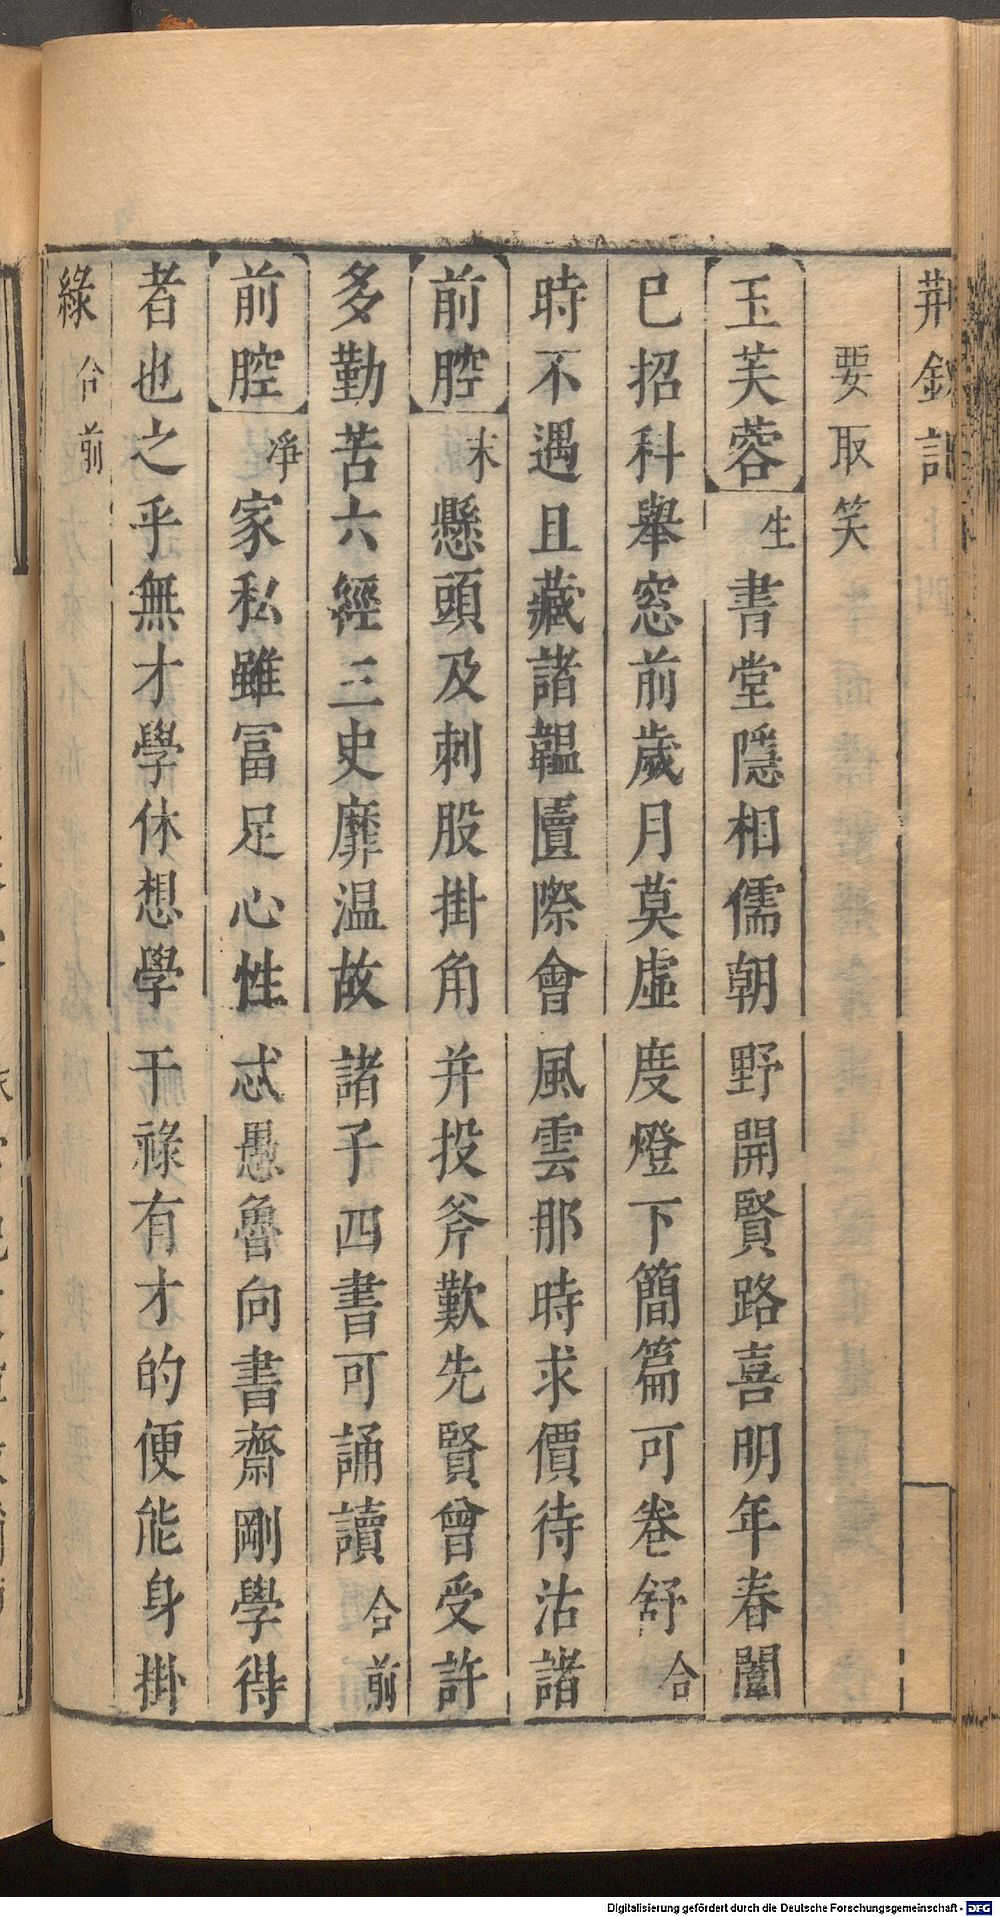 荆釵記
要取笑
玉芙蓉 生 書堂隱相儒朝野開賢路喜明年春闈
已招科舉窓前歲月莫虛度燈下簡篇可卷舒 合
時不遇且藏諸韞匵際會風雲那時求價待沽諸
前腔 末 懸頭及刺股掛角并投斧歎先賢曾受許
多勤苦六經三史靡温故諸子四書可誦讀 合前
前腔 淨 家私雖冨足心性忒愚魯向書齋剛學得
者也之乎無才學休想學干祿有才的便能身掛
綠 合前
Digitalisierung gefördert durch die Deutsche Forschungsgemeinschaft - DFG